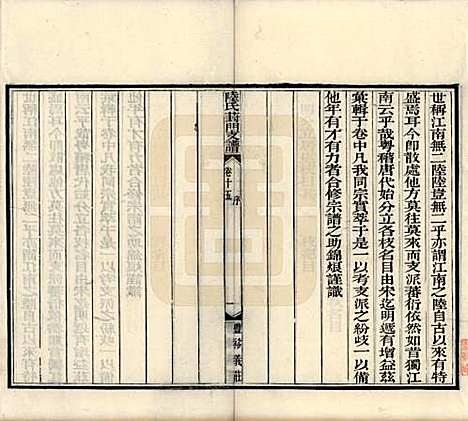 世稱江南無二陸陸豈無二乎亦謂江南之陸自古以來有特
盛焉耳今即散處他方莫往莫來而支派蕃衍依然如昔獨江
南云乎哉粤稽唐代始分立各枝名目由宋迄明遞有增益茲
彙輯于卷中凡我同宗實萃于是一以考支派之紛歧一以備
他年有才有力者合修宗譜之助錦烺謹識
陸氏葑門支譜
卷十五
序
一
豐裕義莊